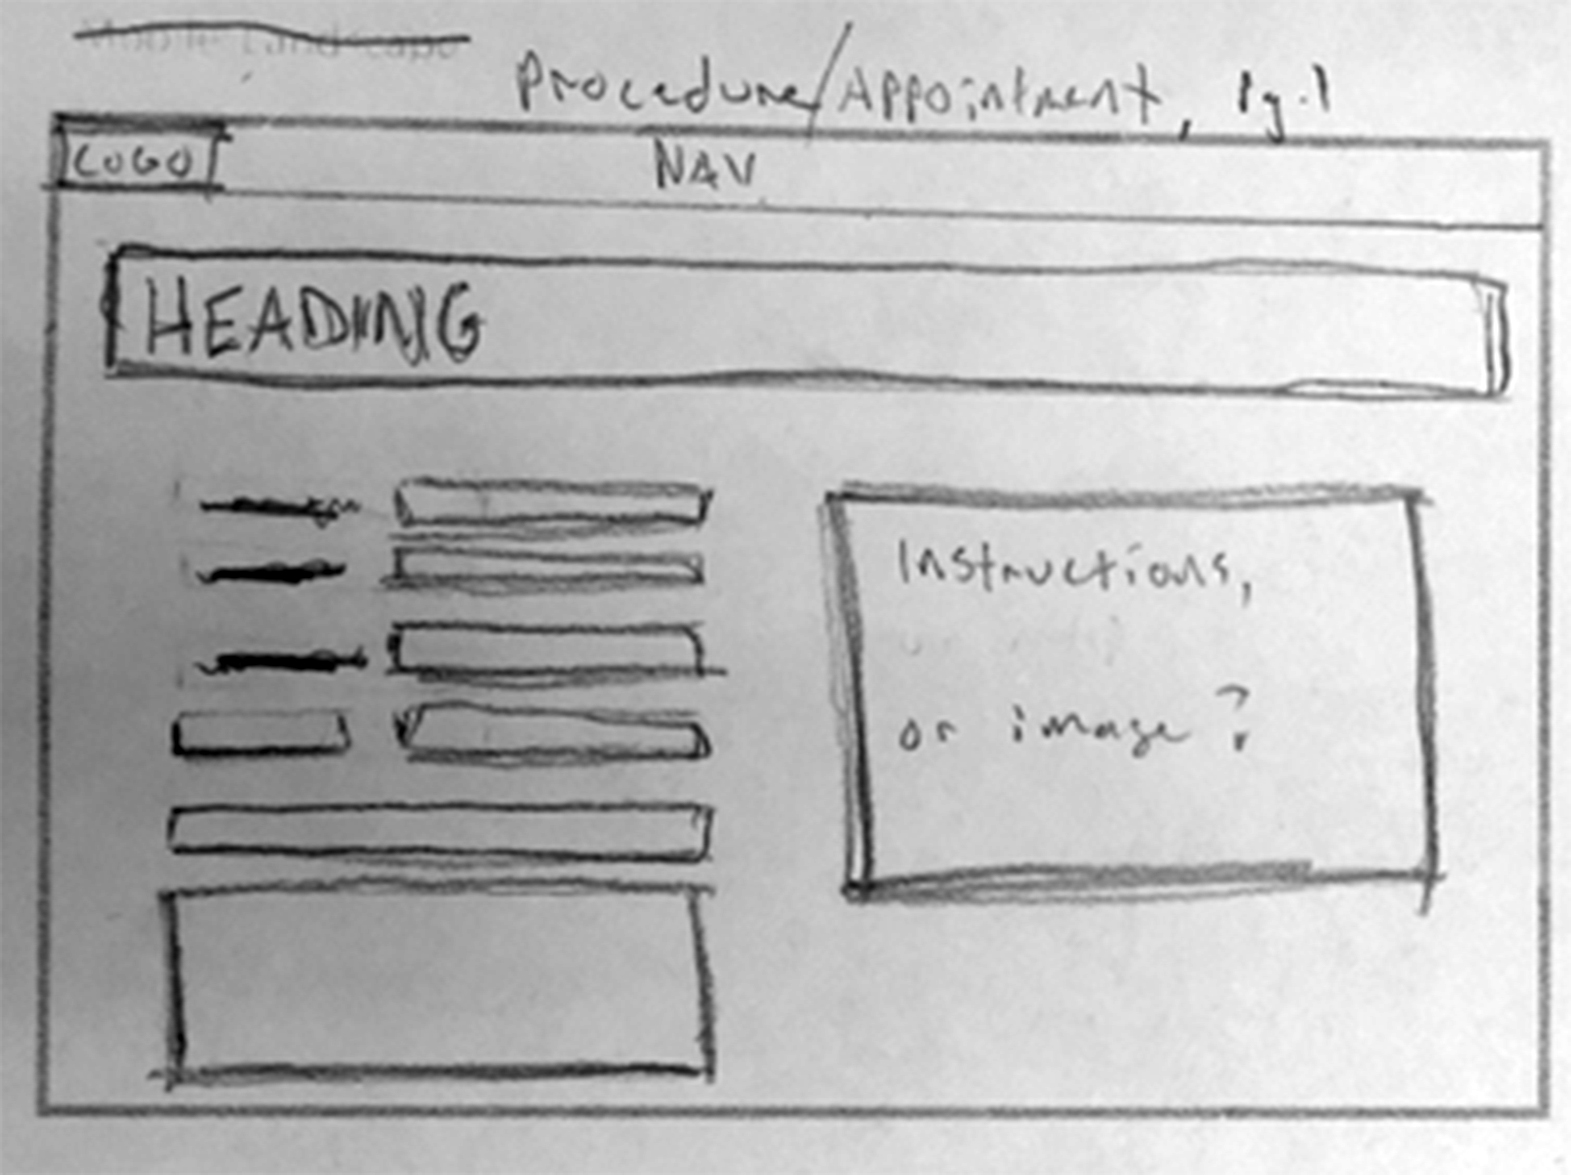 Mobile Landscape
Procedure/Appointment, pg.1
LOGO
NAV
HEADING
Instructions,
or image?